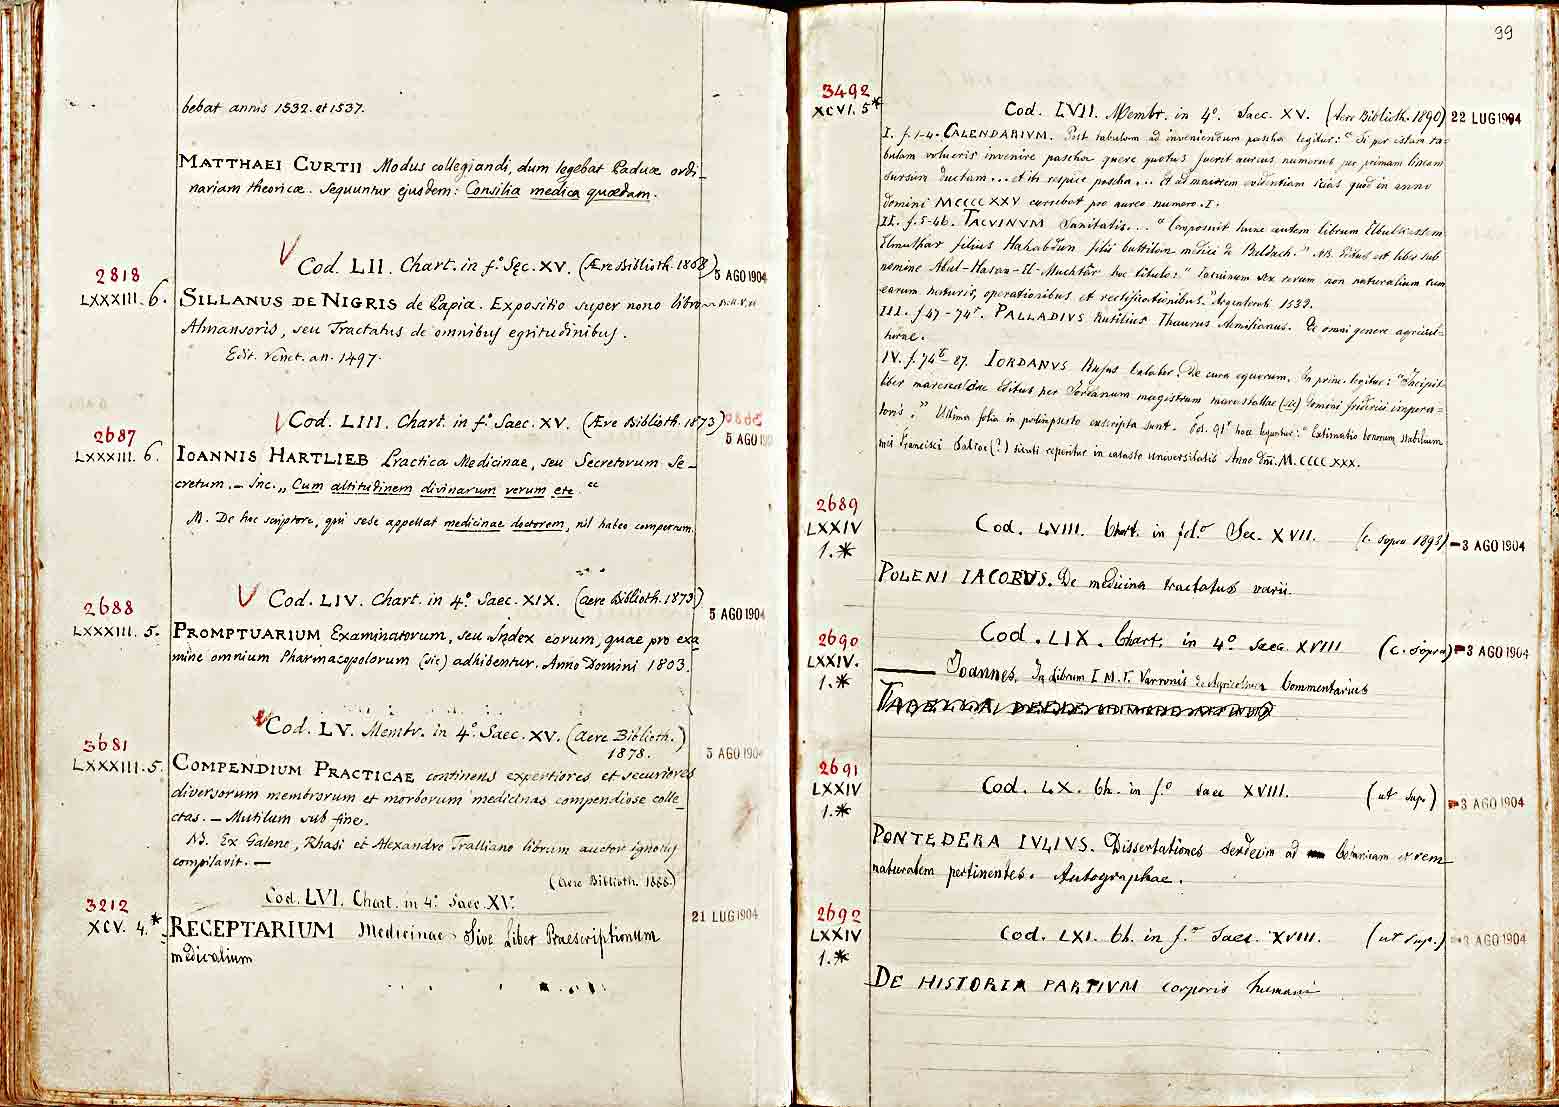 bebat annis 1532. et 1537.
MATTHAEI CURTII Modus collegiandi, dum legebat Paduæ ordi_
nariam theoricæ. Sequuntur ejusdem: Consilia medica quædam.
V Cod. LII. Chart. in fº. Sec. XV. (Ære Biblioth. 1868) 5 AGO 1904
2818
LXXXIII. 6. SILLANUS DE NIGRIS de Papia. Expositio super nono libro
Almansoris, seu Tractatus de omnibus egritudinibus.
Edit. Venet. an. 1497.
V Cod. LIII. Chart. in fº. Saec. XV. (Ære Biblioth. 1873) 5 AGO
2687
LXXXIII. 6. IOANNIS HARTLIEB Practica Medicinae, seu Secretorum Se_
cretum. _ Inc. „ Cum altitudinem divinarum verum etc. "
N. De hoc scriptore, qui sese appellat medicinae doctorem, nil habeo compertum.
V Cod. LIV. Chart. in 4º. Saec. XIX. (aere Biblioth. 1873) 5 AGO 1904
2688
LXXXIII. 5. PROMPTUARIUM Examinatorum, seu Index eorum, quae pro exa
mine omnium Pharmacopolorum (sic) adhibentur. Anno Domini 1803.
Cod. LV. Membr. in 4º. Saec. XV. (aere Biblioth.
1878.) 5 AGO 1904
3681
LXXXIII. 5. COMPENDIUM PRACTICAE continens expertiores et securiores
diversorum membrorum et morborum medicinas compendiose colle_
ctas. _ Mutilum sub fine.
Nb. Ex Galeno, Rhasi et Alexandro Tralliano librum auctor ignotus
compilavit. —
(Aere Biblioth. 1888.)
Cod. LVI. Chart. in 4º. Saec. XV.
3212 21 LUG 1904
XCV. 4.* RECEPTARIUM Medicinae. Sive Liber Praescriptionum
medicalium
99
3492
XCVI. 5* Cod. LVII. Membr. in 4º. Saec. XV. (Aere Biblioth. 1890) 22 LUG 1904
I. f. 1-4. CALENDARIVM. Post tabulam ad inveniendum pascha legitur: " Si per istam ta=
bulam volueris invenire pascha quere quotus fuerit aureus numerus per primam lineam
sursum ductam ... et ibi respice pascha ... Et ad maiorem evidentiam scias quod in anno
domini MCCCCXXV currebat pro aureo numero. I.
II. f. 5-46. TACVINVM Sanitatis... " Composuit hunc autem librum Elbulkassem
Elmutkar filius Hahabdun filii buttilon medici de Beldach." NB. Editus est liber sub
nomine Abul-Hasan-El-Muchtâr hoc titulo: " Tacuinum sex rerum non naturalium cum
earum naturis, operationibus et rectificationibus." Argentorati 1532.
III. f 47-74r. PALLADIVS Rutilius Thaurus Aemilianus. De omni genere agricul=
turae.
IV. f. 74t-87. IORDANVS Rufus Calaber. De cura equorum. In princ. legitur: " Incipit
liber marescalciae editus per Jordanum magistrum marestallae (sic) domini friderici impera=
toris." Ultima folia in palimpsesto exscripta sunt. Fol. 91r haec leguntur: " Extimatio bonorum stabilium
mei Francisci (?) sicuti reperitur in catasto universitatis Anno dni. M. CCCC XXX.
2689
LXXIV
1.* Cod. LVIII. Chart. in fol.º Sec. XVII. (c. sopra 1893) -3 AGO 1904
POLENI IACOBVS. De medicina tractatus varii.
2690
LXXIV.
1.* Cod. LIX. Chart. in 4º Saec. XVIII (c. sopra) -3 AGO 1904
——— Joannes. In Librum I M. T. Varronis de Agricoltura Commentarius
2691
LXXIV
1.* Cod. LX. Ch. in f.º saec XVIII. (ut sup.) -3 AGO 1904
PONTEDERA IVLIVS. Dissertationes sexdecim ad botanicam et rem
naturalem pertinentes. Autographae.
2692
LXXIV
1.* Cod. LXI. Ch. in f.º Saec. XVIII. (ut sup.) -3 AGO 1904
DE HISTORIA PARTIVM corporis humani